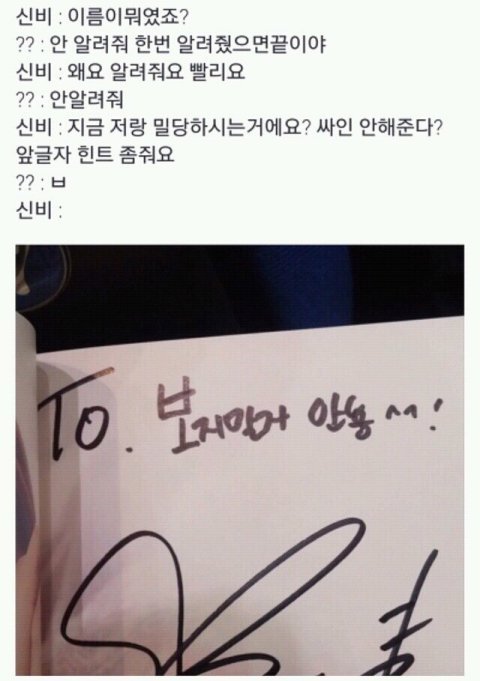 신비 : 이름이뭐였죠?
?? : 안 알려줘 한번 알려줬으면끝이야
신비 : 왜요 알려줘요 빨리요
?? : 안알려줘
신비 : 지금 저랑 밀당하시는거에요? 싸인 안해준다?
앞글자 힌트 좀줘요
?? : ㅂ
신비 :
To. 보지말자 안뇽 ^^!